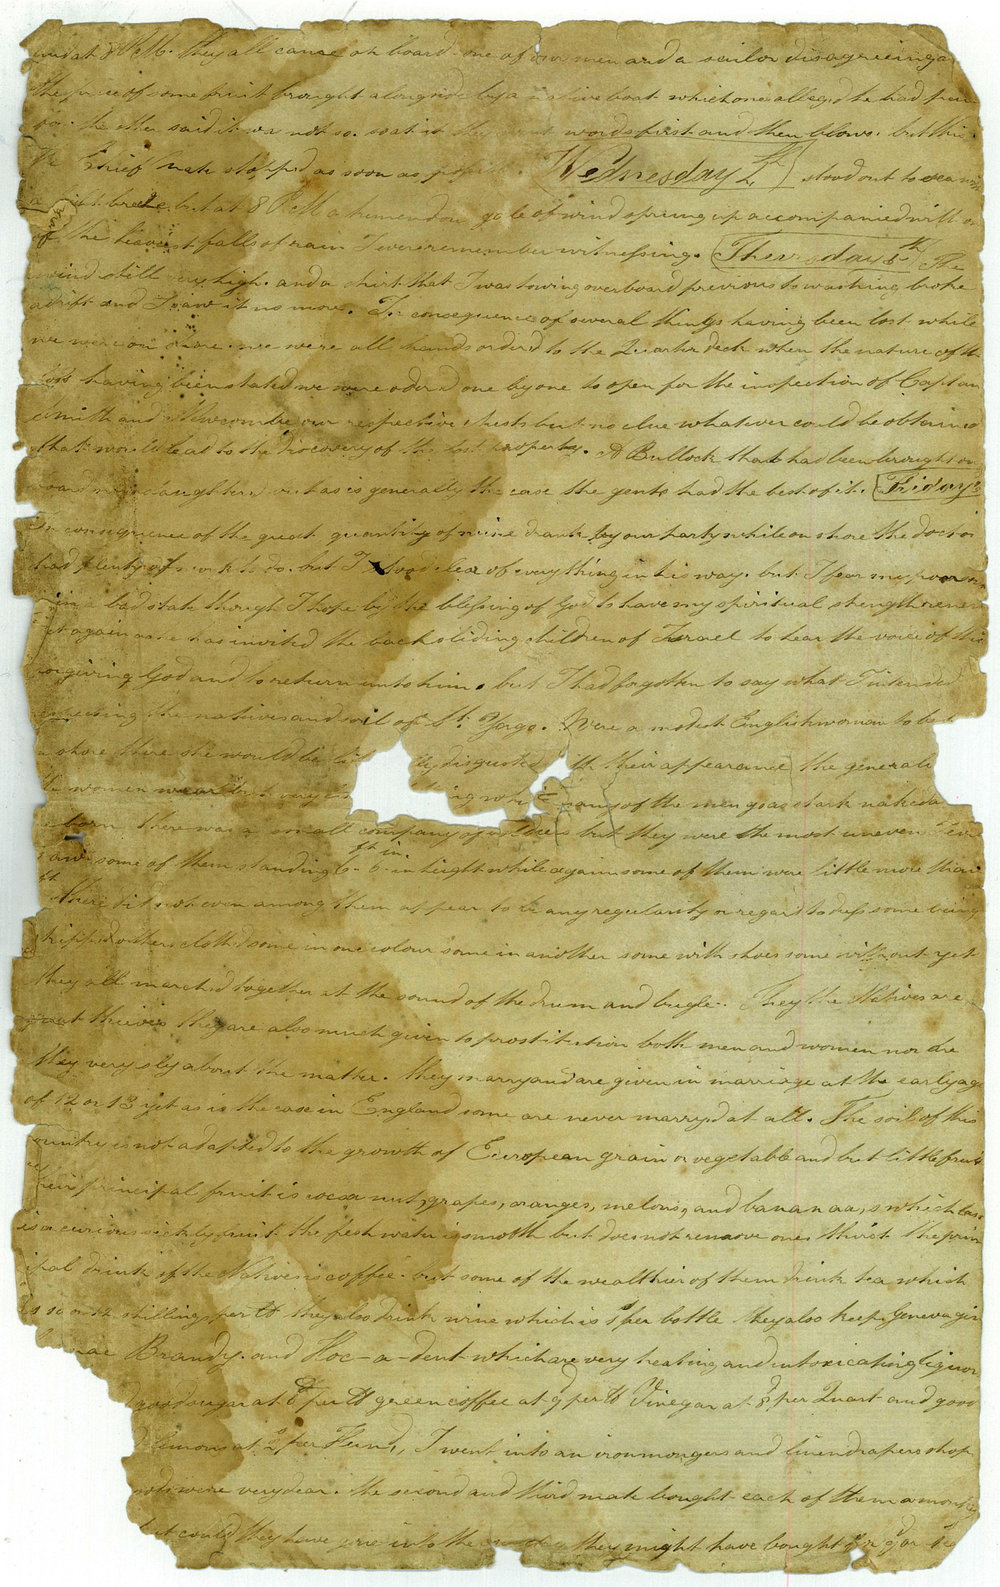 and at 8 P.M. they all came on board one of our men and a sailor disagreeing a
the price of some fruit brought alongside by a native boat which one alleged he had
for the other said it was not so. so at it they went words first and then blows. but this
the Chief Mate stopped as soon as possible. Wednesday 4th stood out to sea with
a light breeze, but at 8 P.M a tremendous gale of wind sprung up accompanied with on
of the heaviest falls of rain I ever remember witnessing. Thursday 5th The
wind still very high. and a shirt that I was towing overboard previous to washing broke
adrift and I saw it no more. In consequence of several things having been lost while
we were on shore. we were all hands orderd to the Quarter deck when the nature of th
loss having been stated we were orderd one by one to open for the inspection of Captain
Smith and Newcombe our respective chests but no clue whatever could be obtained
that would lead to the discovery of the lost property. A Bullock that had been brought on
board was slaughterd but as is generally the case the gents had the best of it. Friday
In consequence of the great quantity of wine drank by our party while on shore the doctor
had plenty of work to do. but I stood clear of every thing in his way. but I fear my poor
in a bad state though I hope by the blessing of God to have my spiritual strength renew
yet again as he has invited the backsliding children of Israel to hear the voice of the
forgiving God and to return unto him. but I had forgotten to say what I intended
respecting the natives and soil of St. Yorgo. Were a modest Englishwoman to be
a shore there she would be disgusted with their appearance the generali
the women wear but very many of the men go as stark naked a
born, there was a small company of soldiers but they were the most uneven I ever
saw some of them standing 6ft 6in in height while again some of them were little more than
ft there did not even among them appear to be any regularity or regard to dress some being
stripped others clothed some in one colour some in another some with shoes some without yet
they all marchd together at the sound of the drum and bugle. They the Natives are
great thieves they are also much given to prostitution both men and women nor are
they very sly about the matter. they marry and are given in marriage at the early age
of 12 or 13 yet as is the case in England some are never marryd at all. The soil of this
country is not adapted to the growth of European grain or vegetable and but little fruit
their principal fruit is cocoa nut, grapes, oranges, melons, and bananaa, s which
is a curious sickly fruit the fresh water is smooth but does not remove ones thirst the prin
ipal drink of the Natives is coffee. but some of the wealthier of them drink tea which
is 10 or 12 shillings per lb they also drink wine which is 1s per bottle they also keep Geneva gin
Brandy. and Hoc-a-dent which are very heating and intoxicating liquor
good sugar at 6d per lb green coffee at 9d per lb Vinegar at 8d per Quart and good
Lemons at per Hund, I went into an ironmongers and linendrapers shop
were very dear. the second and third mate bought each of them a monkey
but could they have gone into the they might have bought for